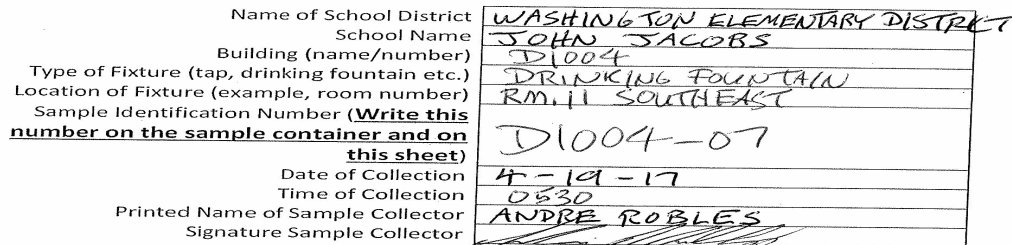 Name of School District WASHINGTON ELEMENTARY DISTRICT
School Name JOHN JACOBS
Building (name/number) D1004
Type of Fixture (tap, drinking fountain etc.) DRINKING FOUNTAIN
Location of Fixture (example, room number) RM.11 SOUTHEAST
Sample Identification Number (Write this
number on the sample container and on
this sheet) D1004-07
Date of Collection 4-19-17
Time of Collection 0530
Printed Name of Sample Collector ANDRE ROBLES
Signature Sample Collector